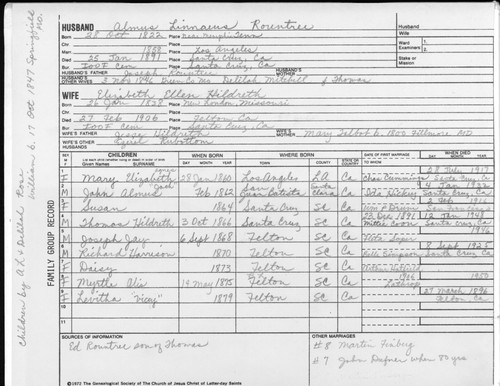 HUSBAND Almus Linnaeus Rountree
Born 28 Oct 1822 Place Near Memphis Tenn
Chr. Place
Marr 1858 Place Los Angeles
Died 25 Jan 1891 Place Santa Cruz, Ca
Bur. IOOF Cem Place Santa Cruz, Ca
HUSBAND'S FATHER Joseph Rountree HUSBAND'S MOTHER
HUSBAND'S OTHER WIVES 3 Nov 1846 Green Co Mo Delilah Mitchell d Thomas
WIFE Elizabeth Ellen Hildreth
Born 26 Jan 1838 Place New London, Missouri
Chr. Place
Died 27 Feb 1906 Place Felton Ca
Bur. IOOF Cem Place Santa Cruz, Ca
WIFE'S FATHER Jesse Hildreth WIFE'S MOTHER Mary Talbot b. 1800 Fillmore MO
WIFE'S OTHER HUSBANDS Rubottom
Husband
Wife
Ward 1.
Examiners: 2.
Stake or
Mission
SEX M F CHILDREN List each child (whether living or dead) in order of birth Given Names SURNAME WHEN BORN DAY MONTH YEAR WHERE BORN TOWN COUNTY STATE OR COUNTRY DATE OF FIRST MARRIAGE TO WHOM WHEN DIED DAY MONTH YEAR
1 F Mary Elizabeth 28 Jan 1860 Los Angeles LA Ca Chas Cummings 28 July 1917 Santa Cruz Ca
2 M John Almus Feb 1862 San Juan Bautista Santa Clara Ca Ida Dickey 4 Jan 1932 Santa Cruz, Ca
3 F Susan 1864 Santa Cruz SC Ca 2 Feb 1916 San Francisco
4 M Thomas Hildreth 3 Oct 1866 Santa Cruz SC Ca 23 Dec 1891 Mittie Coon 12 Jan 1948 Santa Cruz, Ca
5 M Joseph Jay 6 Sept 1868 Felton SC Ca 1946
6 M Richard Harrison 1870 Felton SC Ca Belle Simpson 8 Sept 1925 Santa Cruz Ca
7 F Daisy 1873 Felton SC Ca
8 F Myrtle Alis 19 May 1875 Felton SC Ca 1906 Lathrop 1950
9 F Levitha "Vicy" 1879 Felton SC Ca 27 March 1896 Felton Ca
10
11
SOURCES OF INFORMATION
Ed Rountree son of Thomas
OTHER MARRIAGES
#8 Martin Feiberg
#7 John Dafner when 80 yrs
©1972 The Genealogical Society of The Church of Jesus Christ of Latter-day Saints
FAMILY GROUP RECORD
Children by ALR & Delilah Rose
William b. 17 Oct 1847 Springfield MO.